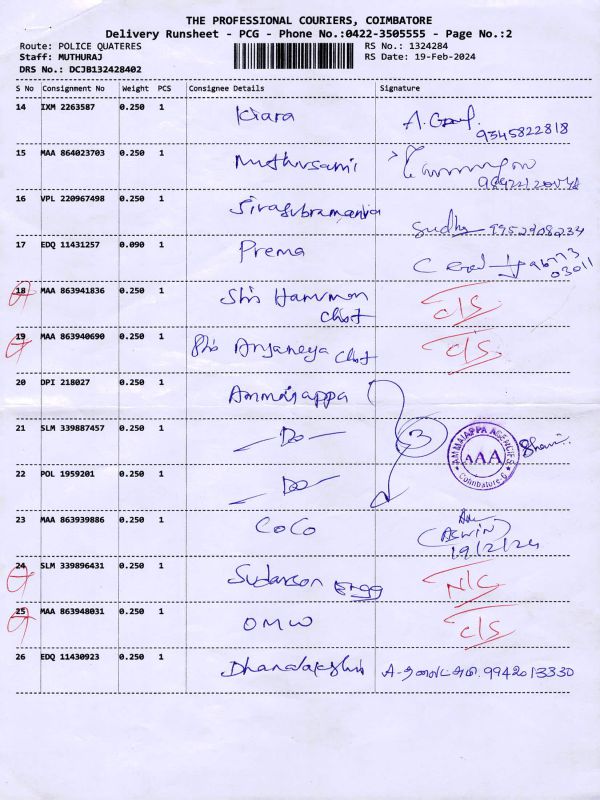 THE PROFESSIONAL COURIERS, COIMBATORE
Delivery Runsheet - PCG - Phone No.:0422-3505555 - Page No.:2
Route: POLICE QUATERES RS No.: 1324284
Staff: MUTHURAJ RS Date: 19-Feb-2024
DRS No.: DCJB132428402
S No Consignment No Weight PCS Consignee Details Signature
14 IXM 2263587 0.250 1 Kiara
9345822818
15 MAA 864023703 0.250 1 Muthusami
16 VPL 220967498 0.250 1 Sivasubramaniya
Sudha 9952908234
17 EDQ 11431257 0.090 1 Prema
03011
18 MAA 863941836 0.250 1 Shri Hanuman C/S
Chot
19 MAA 863940690 0.250 1 Shri Anjaneya Chot C/S
20 DPI 218027 0.250 1 Ammaiappa
21 SLM 339887457 0.250 1 - Do - 3
AMMAIAPPA AGENCIES
AAA
Coimbatore-6
22 POL 1959201 0.250 1 - Do -
23 MAA 863939886 0.250 1 CoCo
(ASWIN)
19/2/24
24 SLM 339896431 0.250 1 Sudarson Engg N/C
25 MAA 863948031 0.250 1 OMW C/S
26 EDQ 11430923 0.250 1 Dhanalakshmi 9942013330